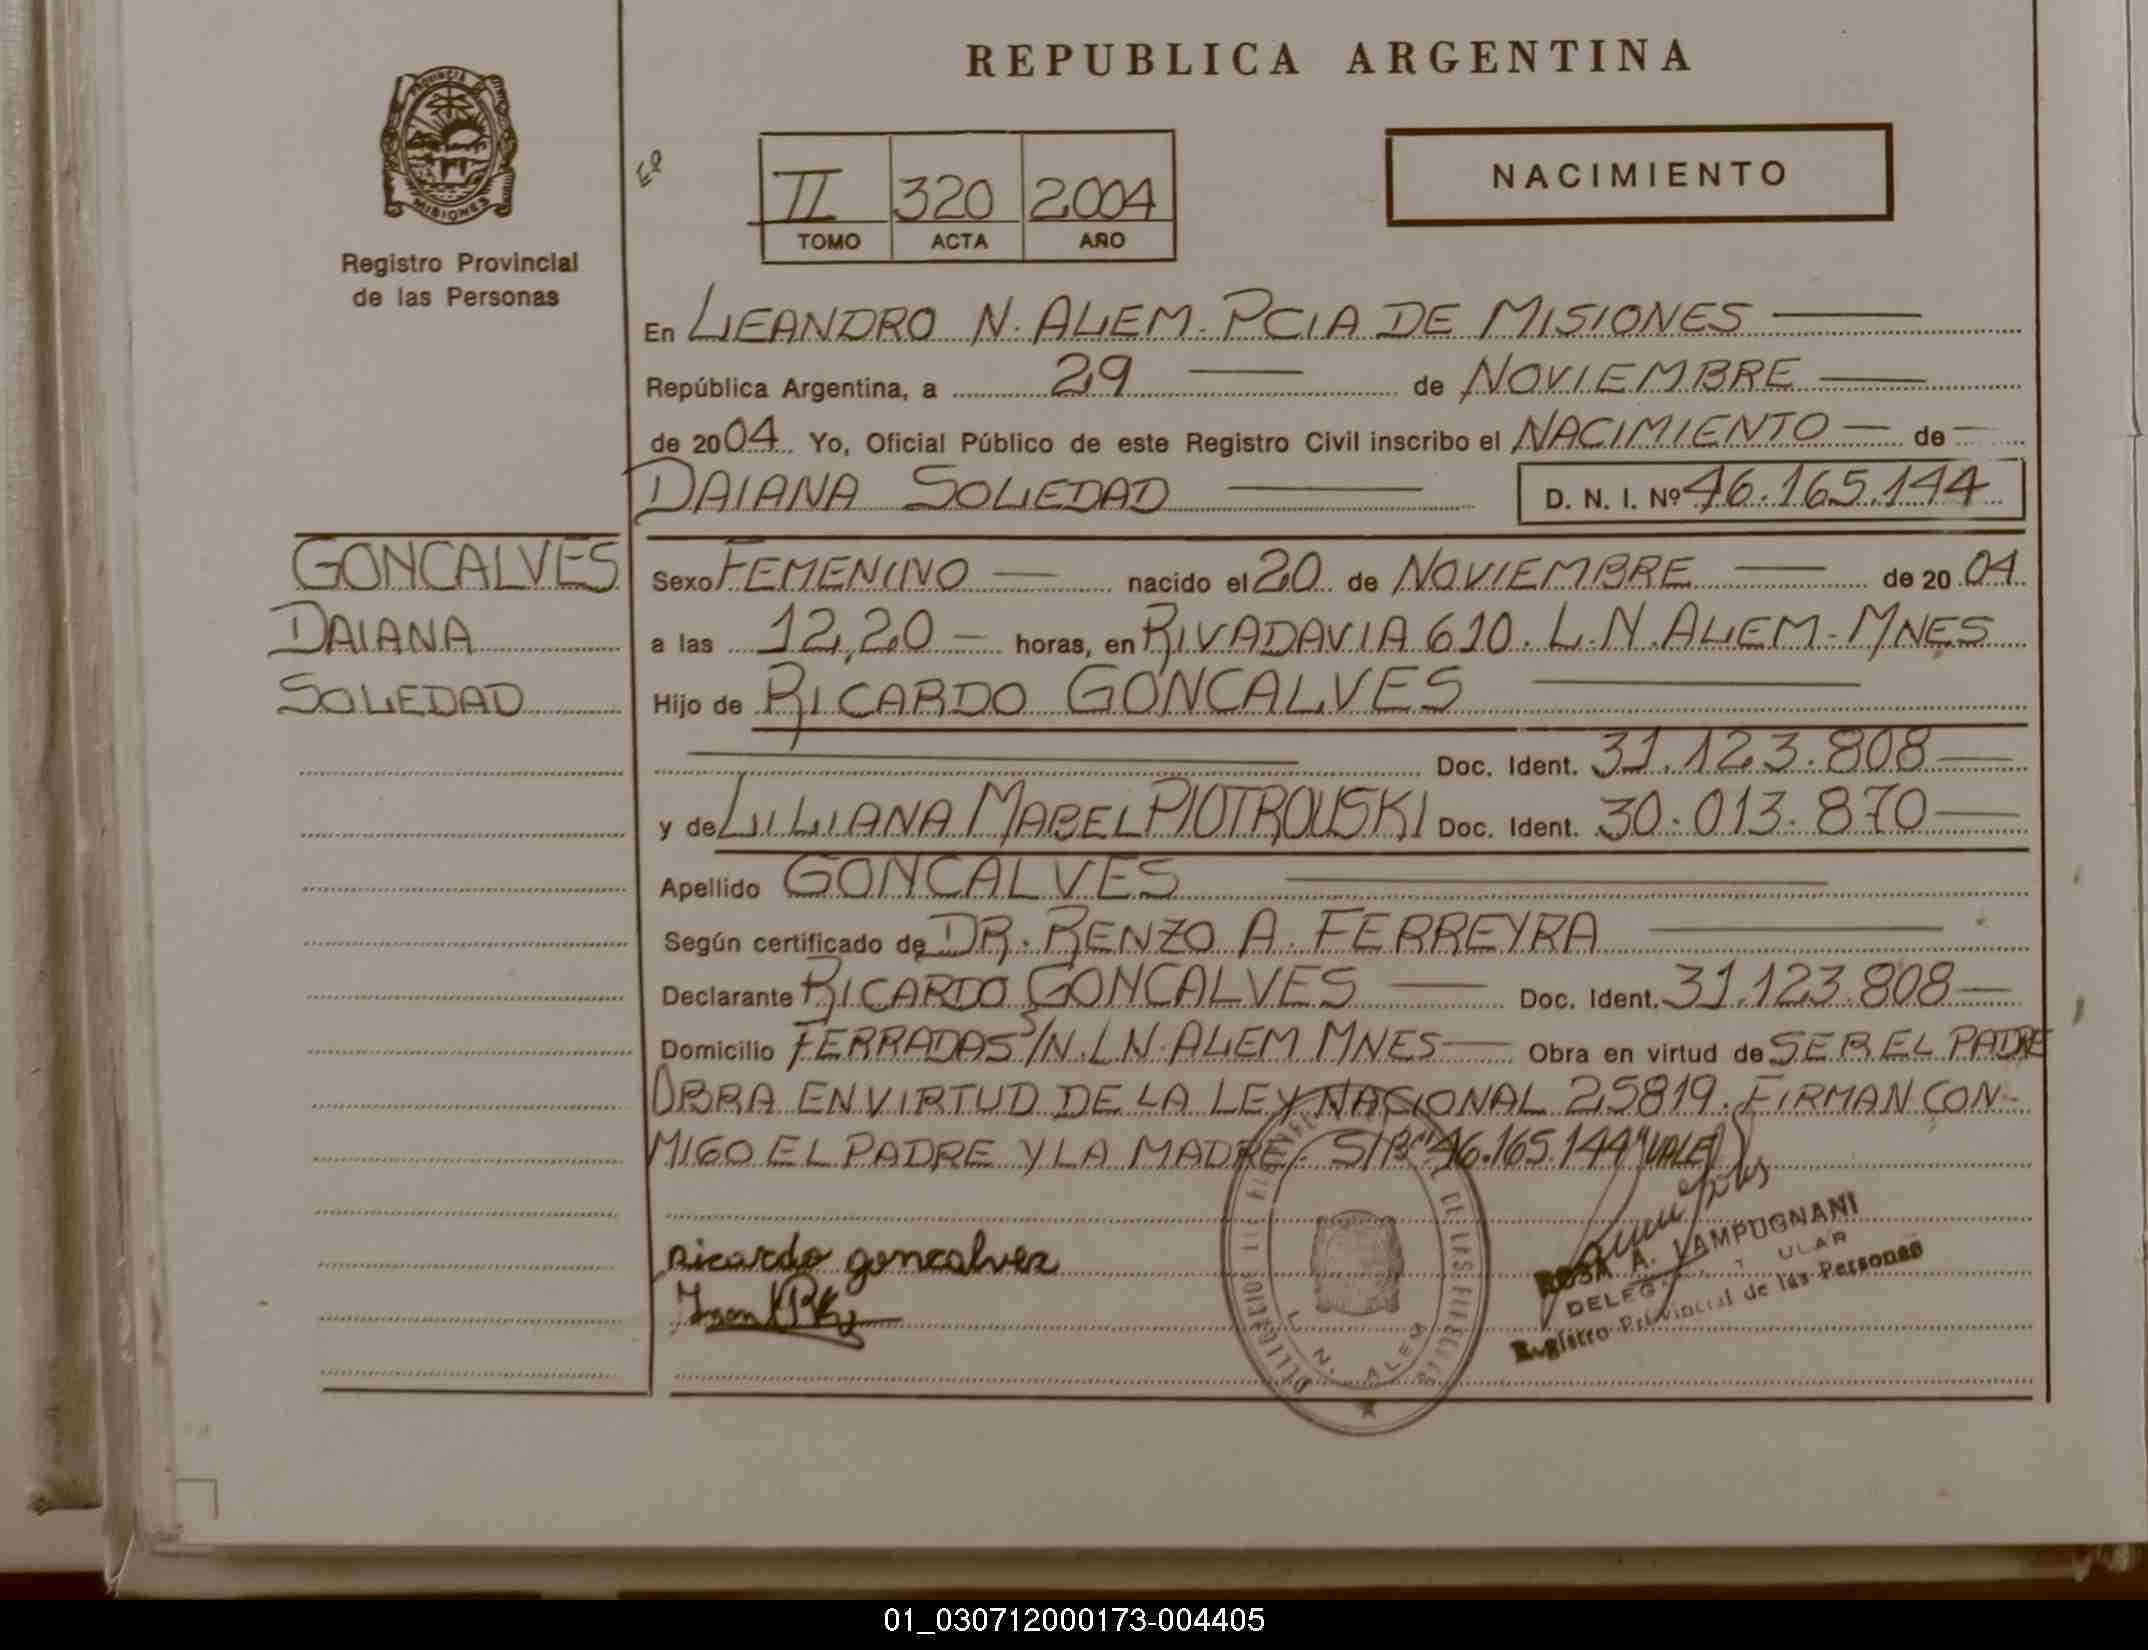 REPUBLICA ARGENTINA
PROVINCIA
MISIONES
Registro Provincial
de las Personas
II 320 2004
TOMO ACTA AÑO
NACIMIENTO
En LEANDRO N. ALEM. PCIA DE MISIONES
República Argentina, a 29 de NOVIEMBRE
de 2004 Yo, Oficial Público de este Registro Civil inscribo el NACIMIENTO de
DAIANA SOLEDAD D. N. I. Nº 46.165.144
GONCALVES
DAIANA
SOLEDAD
Sexo FEMENINO nacido el 20 de NOVIEMBRE de 2004
a las 12,20 horas, en RIVADAVIA 610. L.N. ALEM - MNES
Hijo de RICARDO GONCALVES
Doc. Ident. 31.123.808
y de LILIANA MABEL PIOTROUSKI Doc. Ident. 30.013.870
Apellido GONCALVES
Según certificado de DR. RENZO A. FERREYRA
Declarante RICARDO GONCALVES Doc. Ident. 31.123.808
Domicilio FERRADAS S/N. LN. ALEM MNES Obra en virtud de SER EL PADRE
OBRA EN VIRTUD DE LA LEY NACIONAL 25819. FIRMAN CON-
MIGO EL PADRE Y LA MADRE. S/R "46.165.144" (VALE)
Ricardo goncalvez
ROSA A. LAMPUGNANI
Registro Provincial de las Personas
L. N. ALEM
01_030712000173-004405